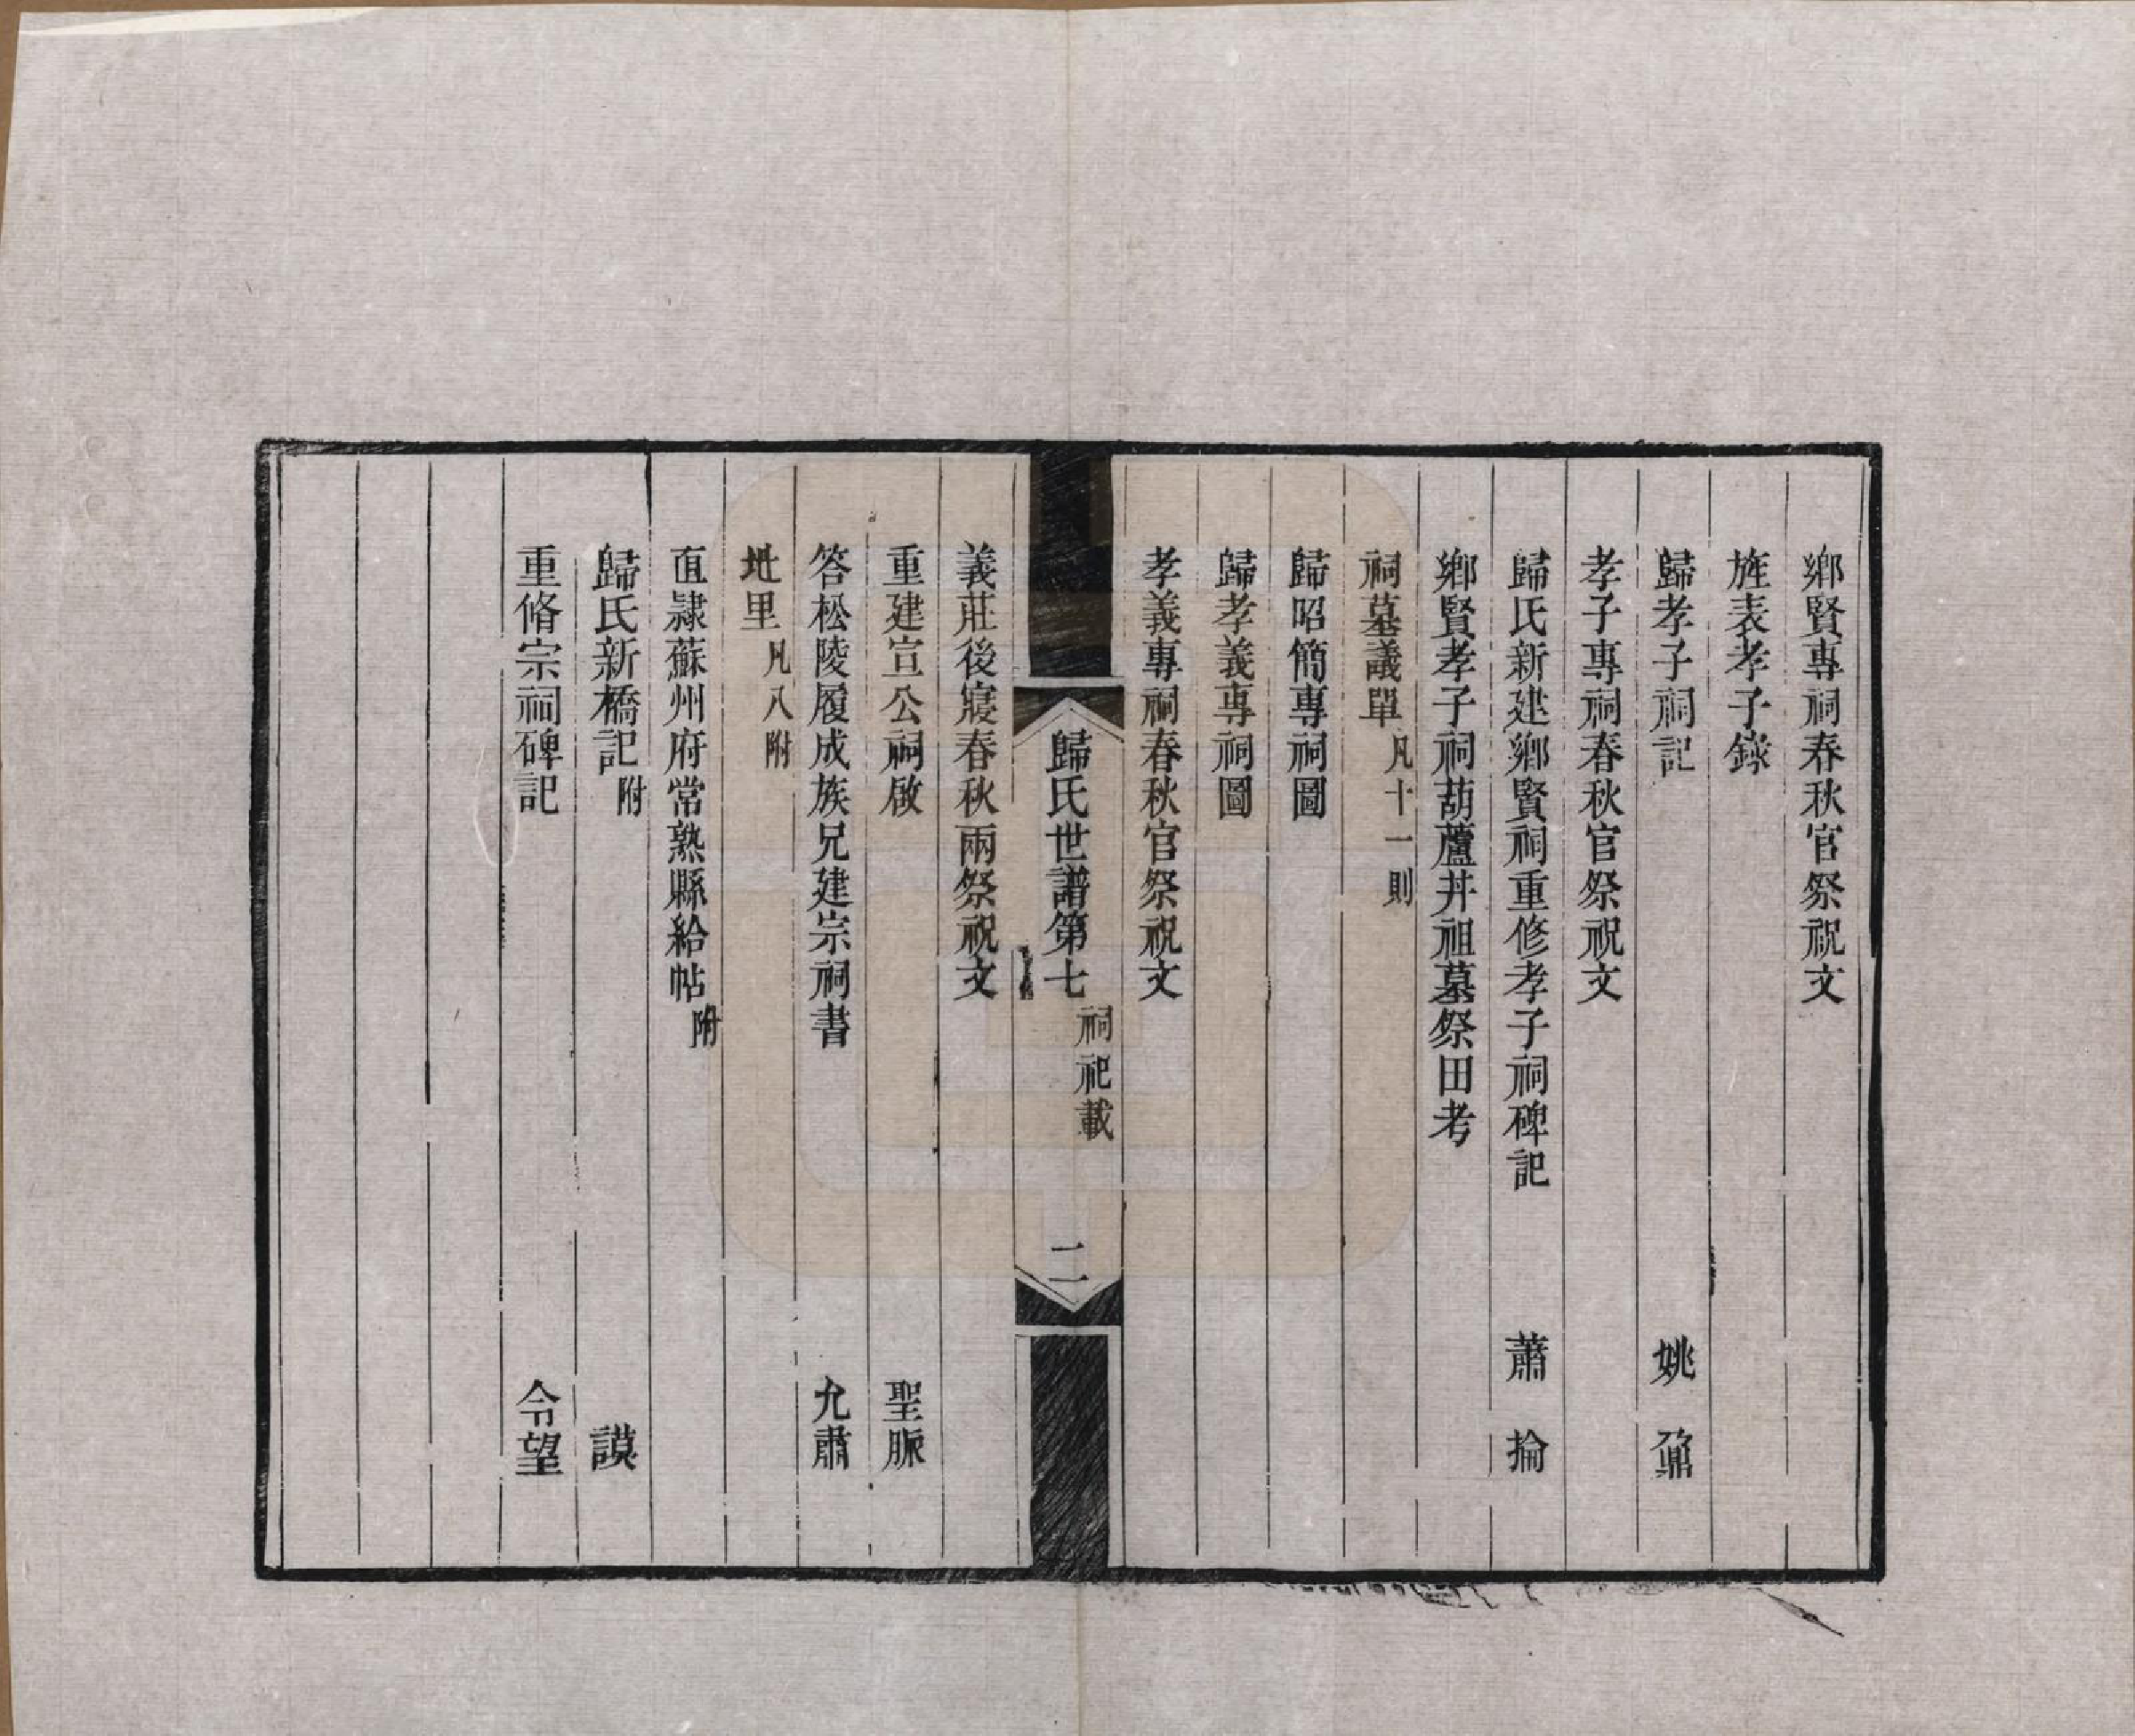 鄉賢專祠春秋官祭祝文
旌表孝子錄
歸孝子祠記 姚鼐
孝子專祠春秋官祭祝文
歸氏新建鄉賢祠重修孝子祠碑記 蕭掄
鄉賢孝子祠葫蘆井祖墓祭田考
祠墓議單 凡十一則
歸昭簡專祠圖
歸孝義專祠圖
孝義專祠春秋官祭祝文
歸氏世譜第七 祠祀載 二
義莊後寢春秋兩祭祝文
重建宣公祠啟 聖脈
答松陵履成族兄建宗祠書 允肅
地里 凡八附
直隸蘇州府常熟縣給帖 附
歸氏新橋記 附 謨
重脩宗祠碑記 令望